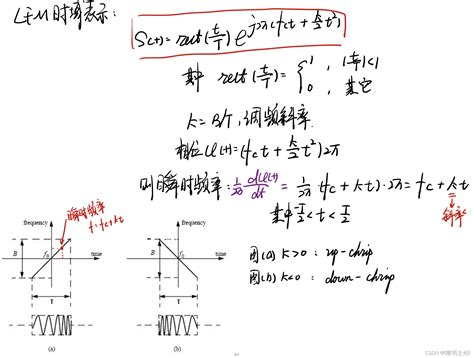 LFM时域表示:
S(t)= rect(t/T) e^{j2π(fct+K/2t²)}
其中 rect(t/T) = { 1 , |t/T|<1
0 , 其它
K=B/T, 调频斜率
相位φ(t)=(fct+K/2t²)2π
则瞬时频率: 1/2π dφ(t)/dt = 1/2π·(fc+Kt)·2π = fc+Kt
斜率
其中-T/2<t<T/2
瞬时频率
f=fc+Kt
frequency
B
f0
time
T
(a)
frequency
B
f0
time
T
(b)
图(a) K>0 : up-chrip
图(b) K<0 : down-chrip